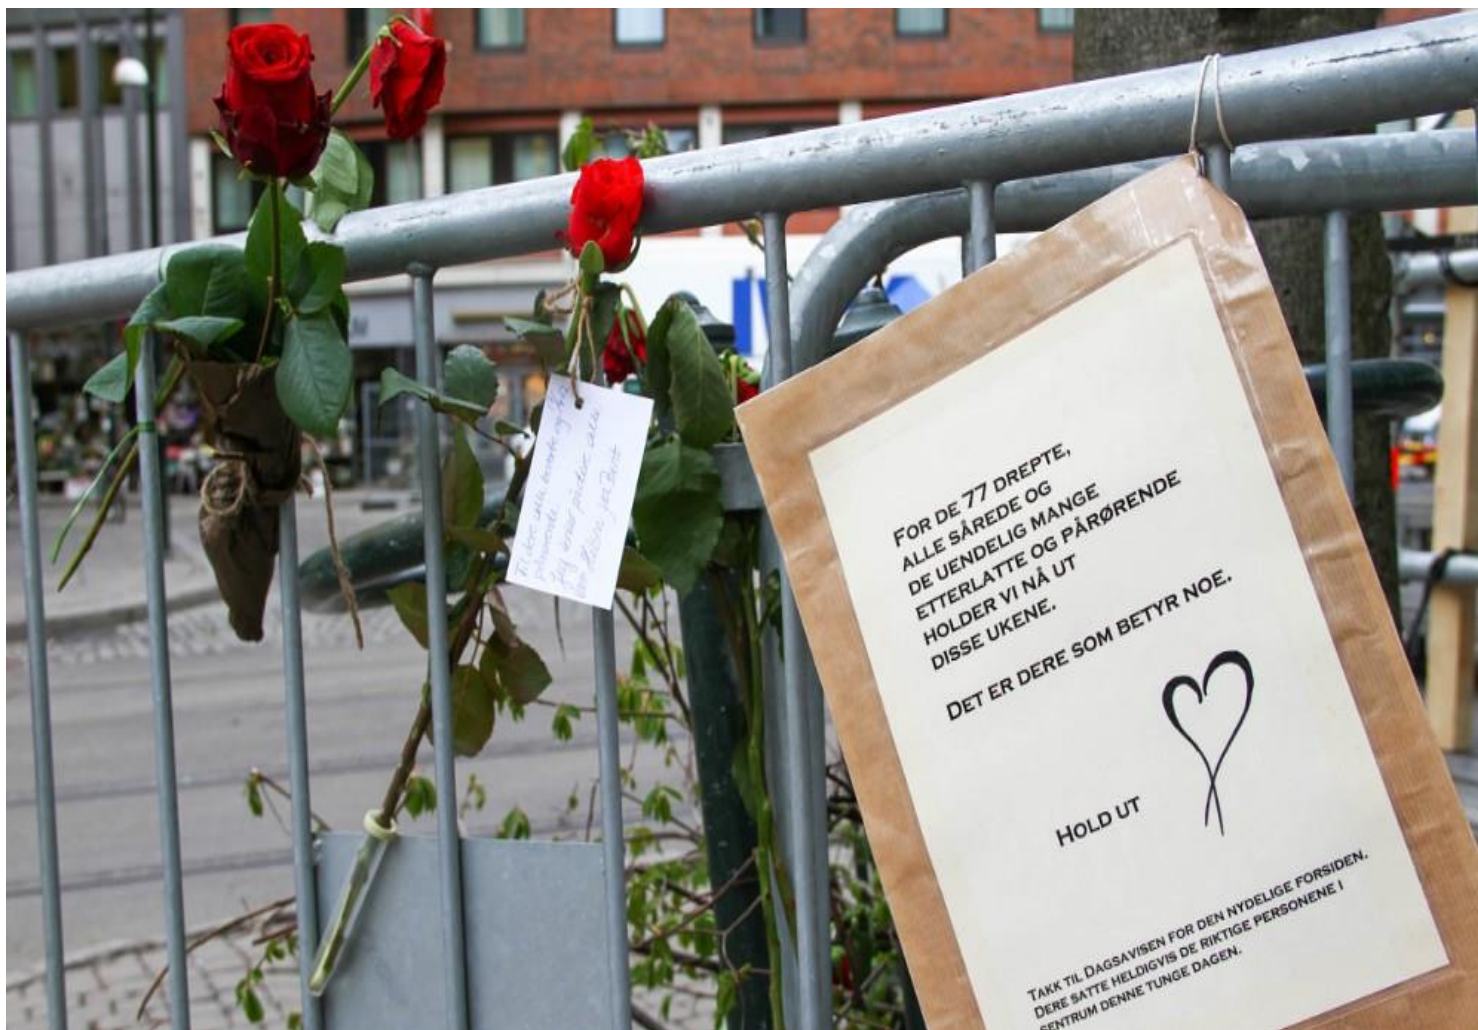 Til dere alle berørte og
pårørende.
Jeg tenker på dere alle
FOR DE 77 DREPTE,
ALLE SÅREDE OG
DE UENDELIG MANGE
ETTERLATTE OG PÅRØRENDE
HOLDER VI NÅ UT
DISSE UKENE.
DET ER DERE SOM BETYR NOE.
HOLD UT
TAKK TIL DAGSAVISEN FOR DEN NYDELIGE FORSIDEN.
DERE SATTE HELDIGVIS DE RIKTIGE PERSONENE I
SENTRUM DENNE TUNGE DAGEN.